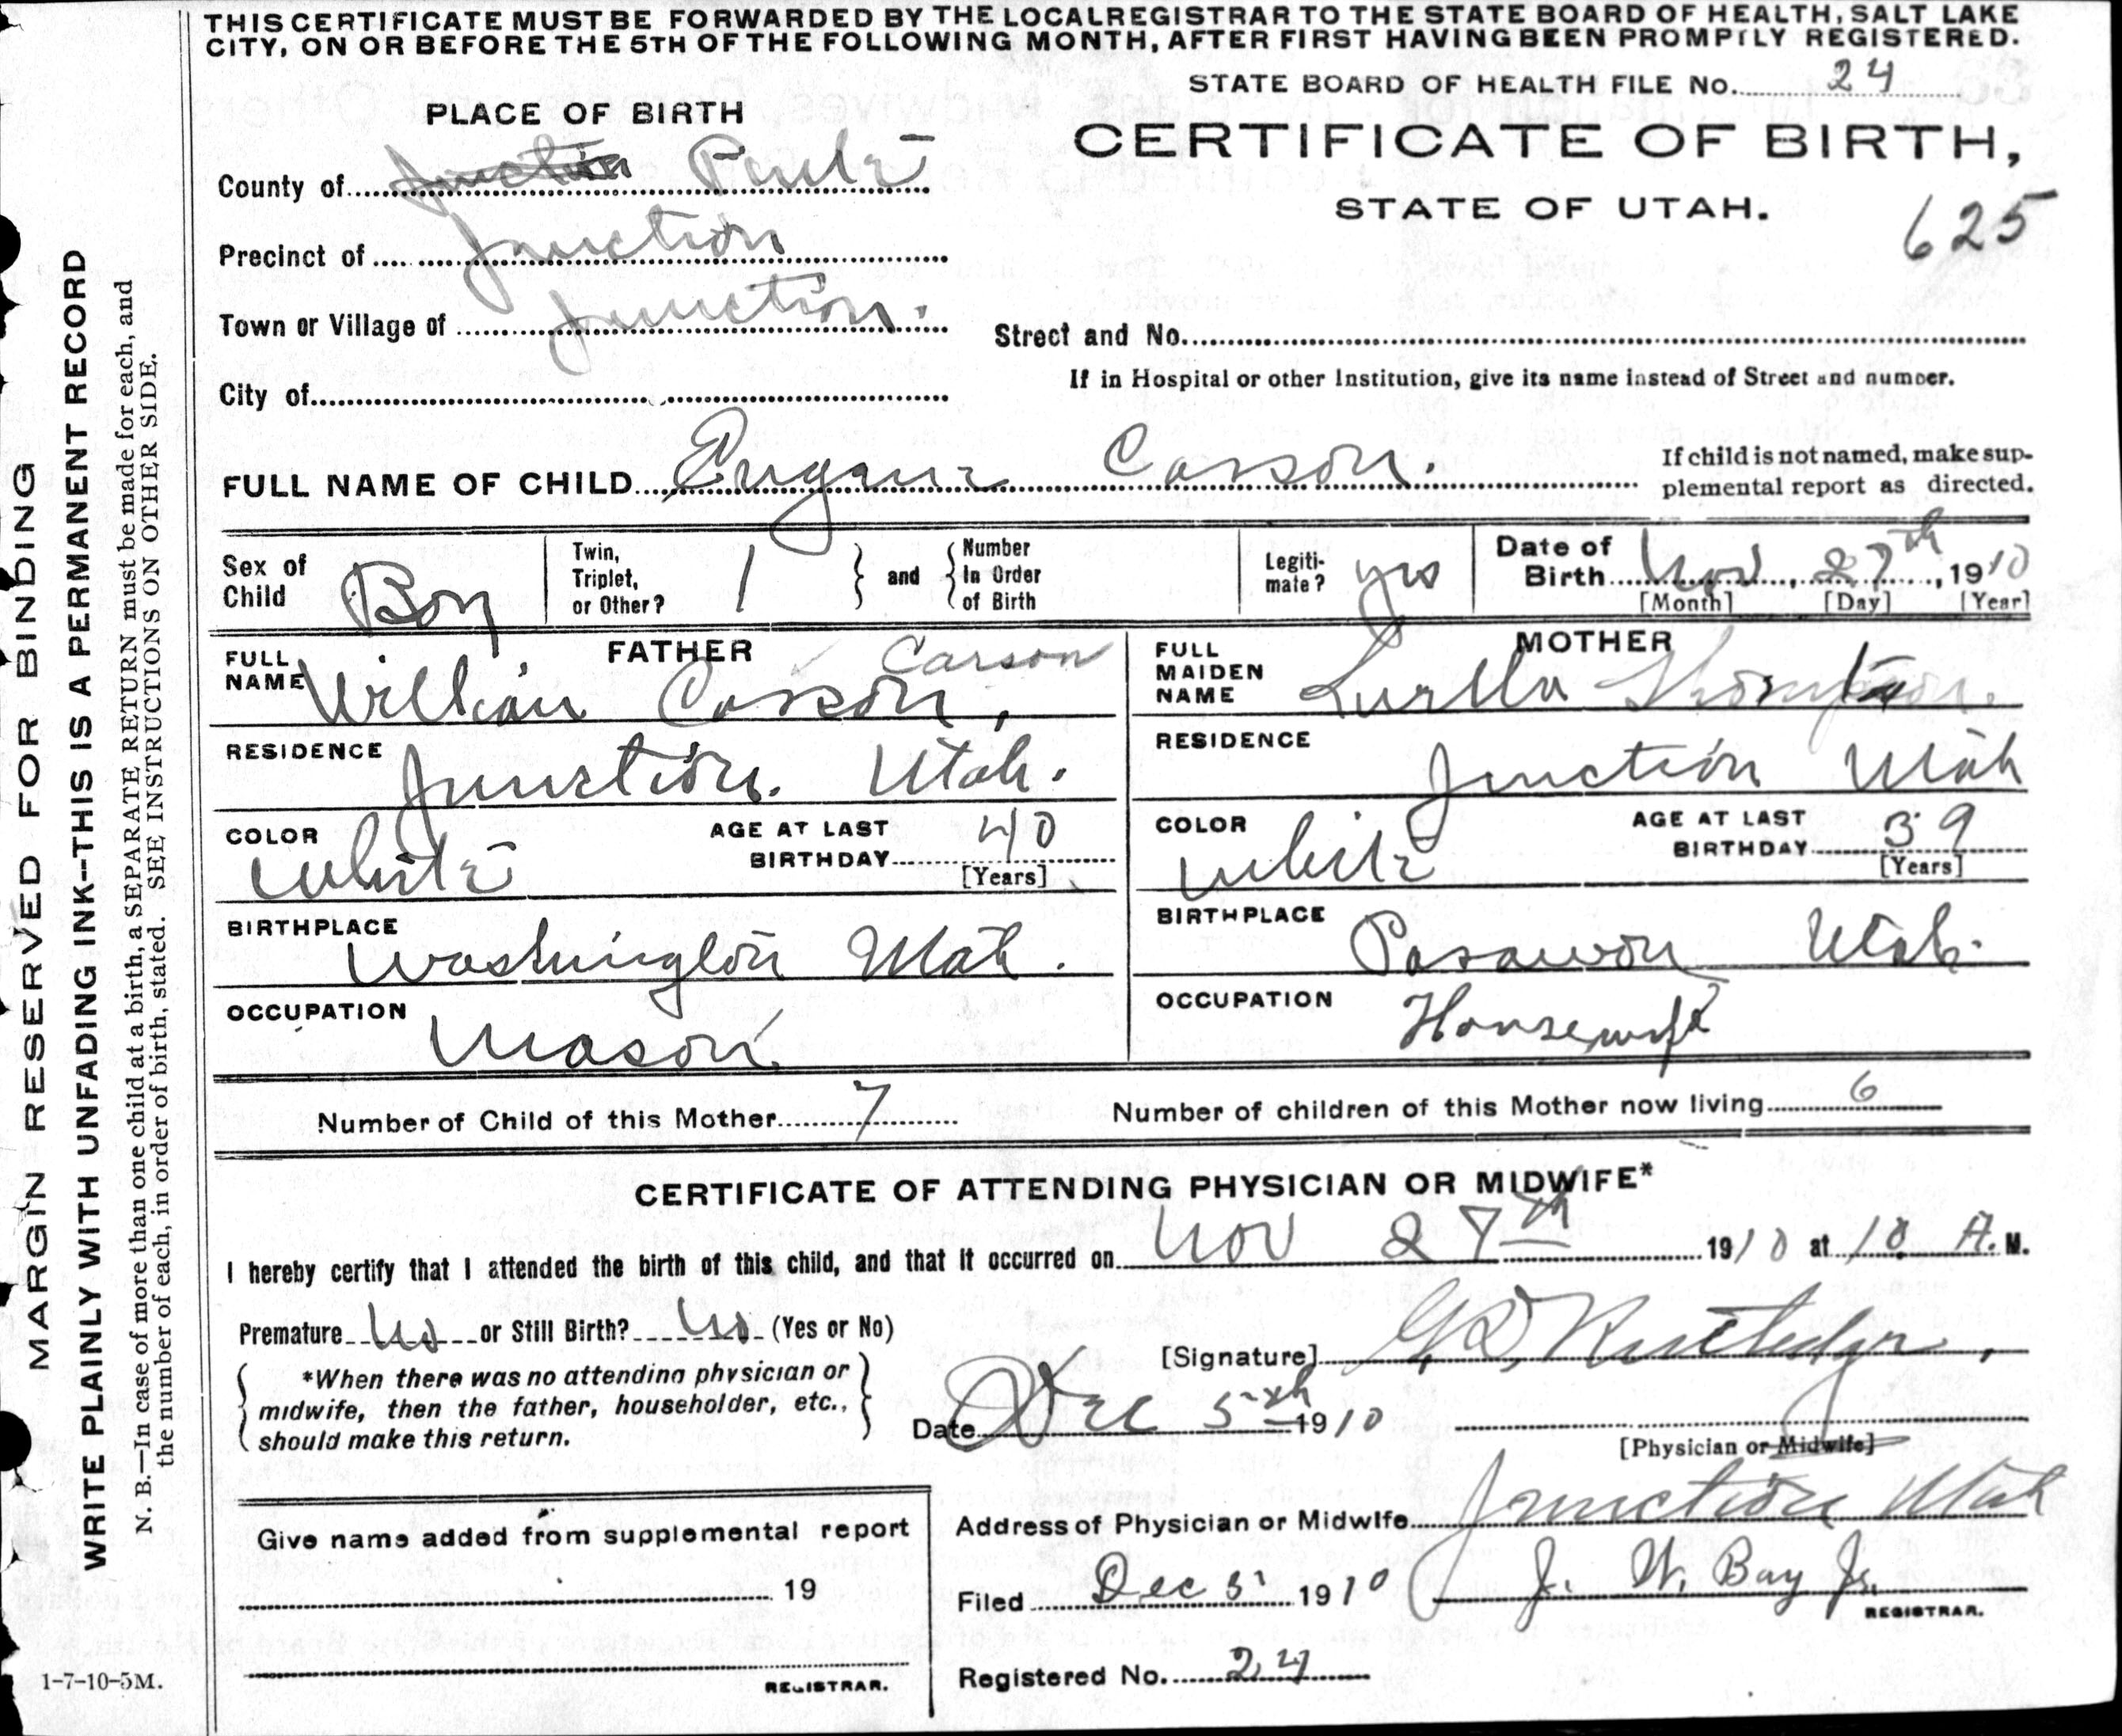 THIS CERTIFICATE MUST BE FORWARDED BY THE LOCAL REGISTRAR TO THE STATE BOARD OF HEALTH, SALT LAKE
CITY, ON OR BEFORE THE 5TH OF THE FOLLOWING MONTH, AFTER FIRST HAVING BEEN PROMPTLY REGISTERED.
STATE BOARD OF HEALTH FILE No. 24
PLACE OF BIRTH
CERTIFICATE OF BIRTH,
STATE OF UTAH.
625
County of Junction Piute
Precinct of Junction
Town or Village of Junction.
Street and No.
City of
If in Hospital or other Institution, give its name instead of Street and number.
FULL NAME OF CHILD Eugene Casson.
If child is not named, make sup-
plemental report as directed.
Sex of
Child
Boy
Twin,
Triplet,
or Other?
1
and
Number
In Order
of Birth
Legiti-
mate?
yes
Date of
Birth Nov 27th, 1910
[Month] [Day] [Year]
FATHER
FULL
NAME
William Casson,
Carson
RESIDENCE
Junction. Utah.
COLOR
White
AGE AT LAST
BIRTHDAY 40
[Years]
BIRTHPLACE
Washington Utah.
OCCUPATION
Mason
MOTHER
FULL
MAIDEN
NAME
Luella Thompson.
RESIDENCE
Junction Utah
COLOR
White
AGE AT LAST
BIRTHDAY 39
[Years]
BIRTHPLACE
Utah.
OCCUPATION
Housewife
Number of Child of this Mother 7
Number of children of this Mother now living 6
CERTIFICATE OF ATTENDING PHYSICIAN OR MIDWIFE*
I hereby certify that I attended the birth of this child, and that it occurred on Nov 27th 1910 at 10 A. M.
Premature No or Still Birth? No (Yes or No)
*When there was no attending physician or
midwife, then the father, householder, etc.,
should make this return.
[Signature] G.D. Rutledge,
Date Dec 5th 1910
[Physician or Midwife]
Address of Physician or Midwife Junction Utah
Filed Dec 5 1910 J. W. Bay Jr.
REGISTRAR.
Registered No. 24
Give name added from supplemental report
19
REGISTRAR.
MARGIN RESERVED FOR BINDING
WRITE PLAINLY WITH UNFADING INK--THIS IS A PERMANENT RECORD
N. B.—In case of more than one child at a birth, a SEPARATE RETURN must be made for each, and
the number of each, in order of birth, stated. SEE INSTRUCTIONS ON OTHER SIDE.
1-7-10-5M.